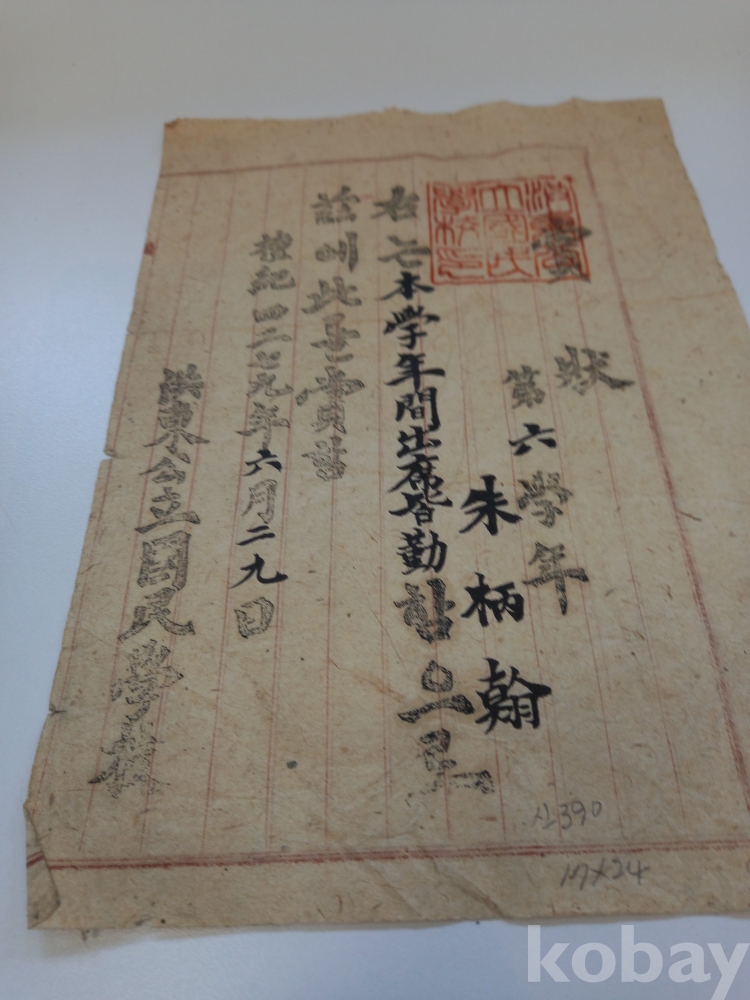 賞
狀
第六學年
朱柄翰
右는本學年間出席皆勤함으로
玆에此를賞함
檀紀四二七九年六月二九日
洪東公立國民學校
4390
17×24
kobay